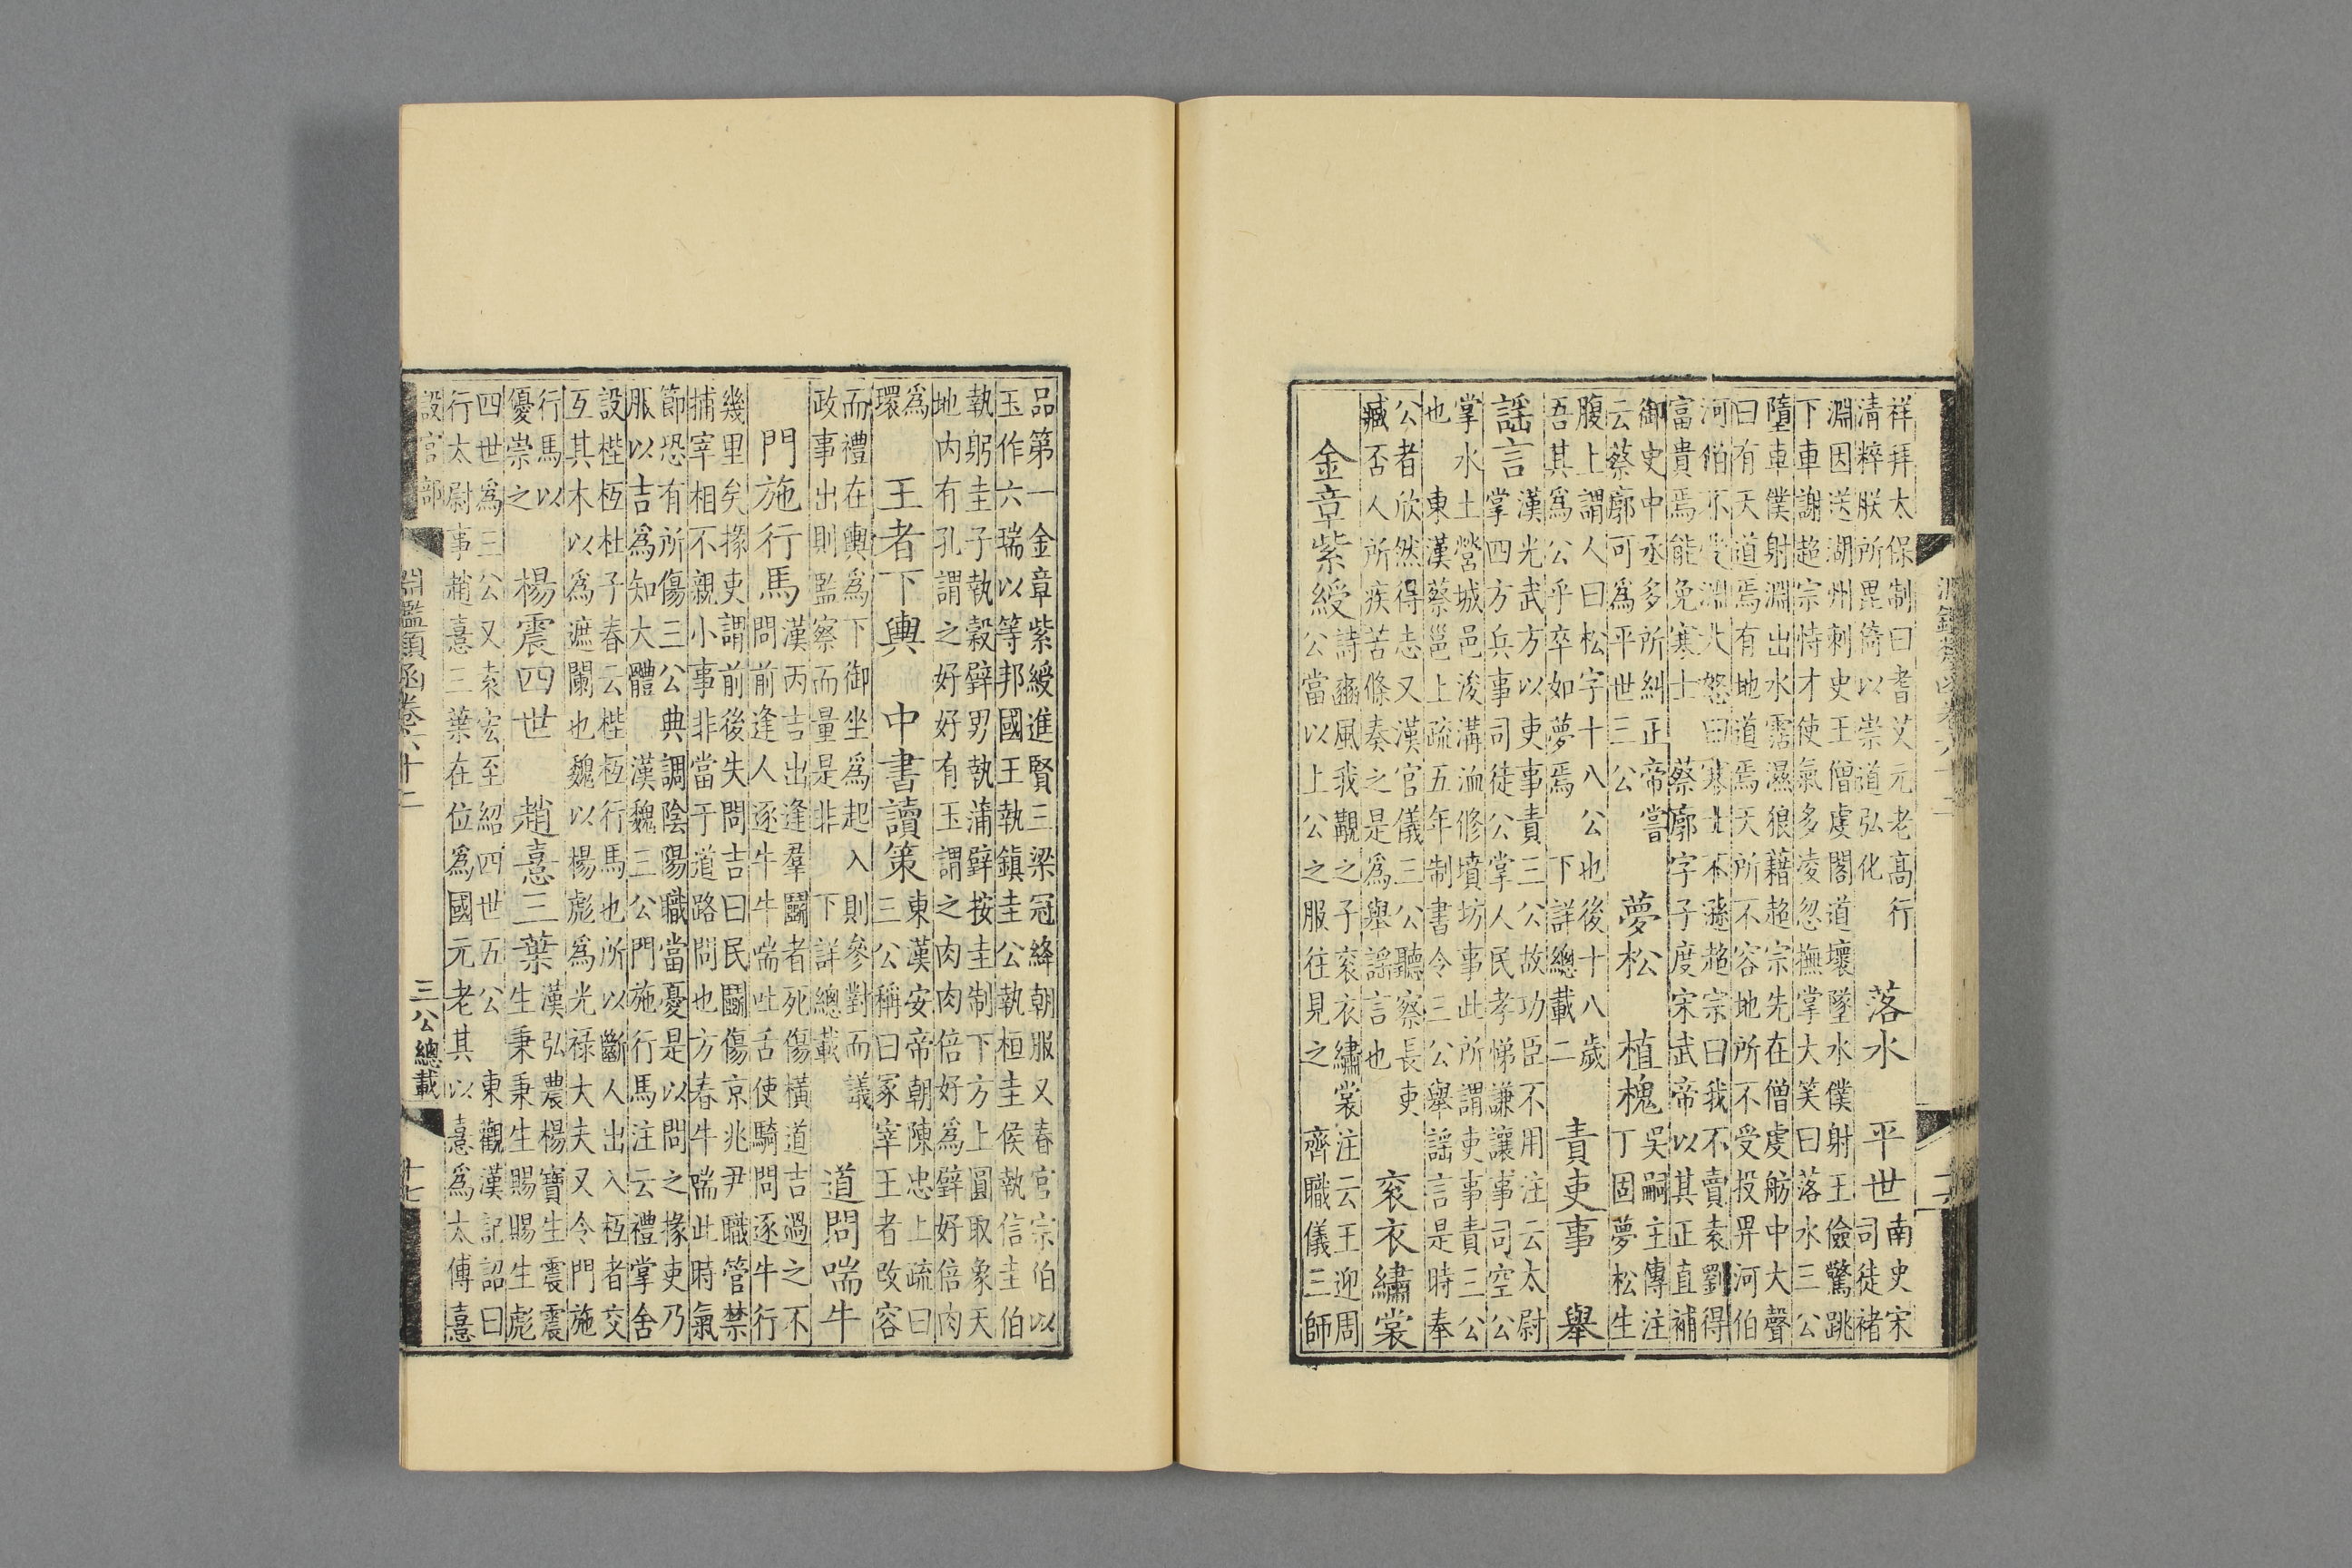 祥拜太保制曰耆艾元老高行
清粹朕所毘倚以崇道弘化
落水　平世
南史宋
司徒褚
淵因送湖州刺史王僧虔閣道壞墜水僕射王儉驚跳
下車謝超宗恃才使氣多凌忽撫掌大笑曰落水三公
墮車僕射淵出水霑濕狼藉超宗先在僧虔舫中大聲
曰有天道焉有地道焉天所不容地所不受投畀河伯
河伯不受淵大怒曰寒士不遜超宗曰我不賣袁劉得
富貴焉能免寒士　蔡廓字子度宋武帝以其正直補
御史中丞多所糾正帝嘗
云蔡廓可爲平世三公
夢松　植槐
吳嗣主傳注
丁固夢松生
腹上謂人曰松字十八公也後十八歲
吾其爲公乎卒如夢焉　下詳總載二
責吏事　舉
謠言
漢光武方以吏事責三公故功臣不用注云太尉
掌四方兵事司徒公掌人民孝悌謙讓事司空公
掌水土營城邑浚溝洫修墳坊事此所謂吏事責三公
也　東漢蔡邕上疏五年制書令三公舉謠言是時奉
公者欣然得志又漢官儀三公聽察長吏
臧否人所疾苦條奏之是爲舉謠言也
袞衣繡裳
金章紫綬
詩豳風我覯之子袞衣繡裳注云王迎周
公當以上公之服往見之　齊職儀三師
品第一金章紫綬進賢三梁冠絳朝服又春官宗伯以
玉作六瑞以等邦國王執鎮圭公執桓圭侯執信圭伯
執躬圭子執穀璧男執蒲璧按圭制下方上圓取象天
地內有孔謂之好好有玉謂之肉肉倍好爲璧好倍肉
爲
環
王者下輿　中書讀策
東漢安帝朝陳忠上疏曰
三公稱曰冢宰王者改容
而禮在輿爲下御坐爲起入則參對而議
政事出則監察而量是非　下詳總載
道問喘牛
門施行馬
漢丙吉出逢羣鬬者死傷橫道吉過之不
問前逢人逐牛牛喘吐舌使騎問逐牛行
幾里矣掾吏謂前後失問吉曰民鬬傷京兆尹職管禁
捕宰相不親小事非當于道路問也方春牛喘此時氣
節恐有所傷三公典調陰陽職當憂是以問之掾吏乃
服以吉爲知大體　漢魏三公門施行馬注云禮掌舍
設梐枑杜子春云梐枑行馬也所以斷人出入枑者交
互其木以爲遮闌也魏以楊彪爲光祿大夫又令門施
行馬以
優崇之
楊震四世　趙憙三葉
漢弘農楊寶生震震
生秉秉生賜賜生彪
四世爲三公又袁宏至紹四世五公　東觀漢記詔曰
行太尉事趙憙三葉在位爲國元老其以憙爲太傅憙
設官部
淵鑑類函卷六十二
三公總載
十七